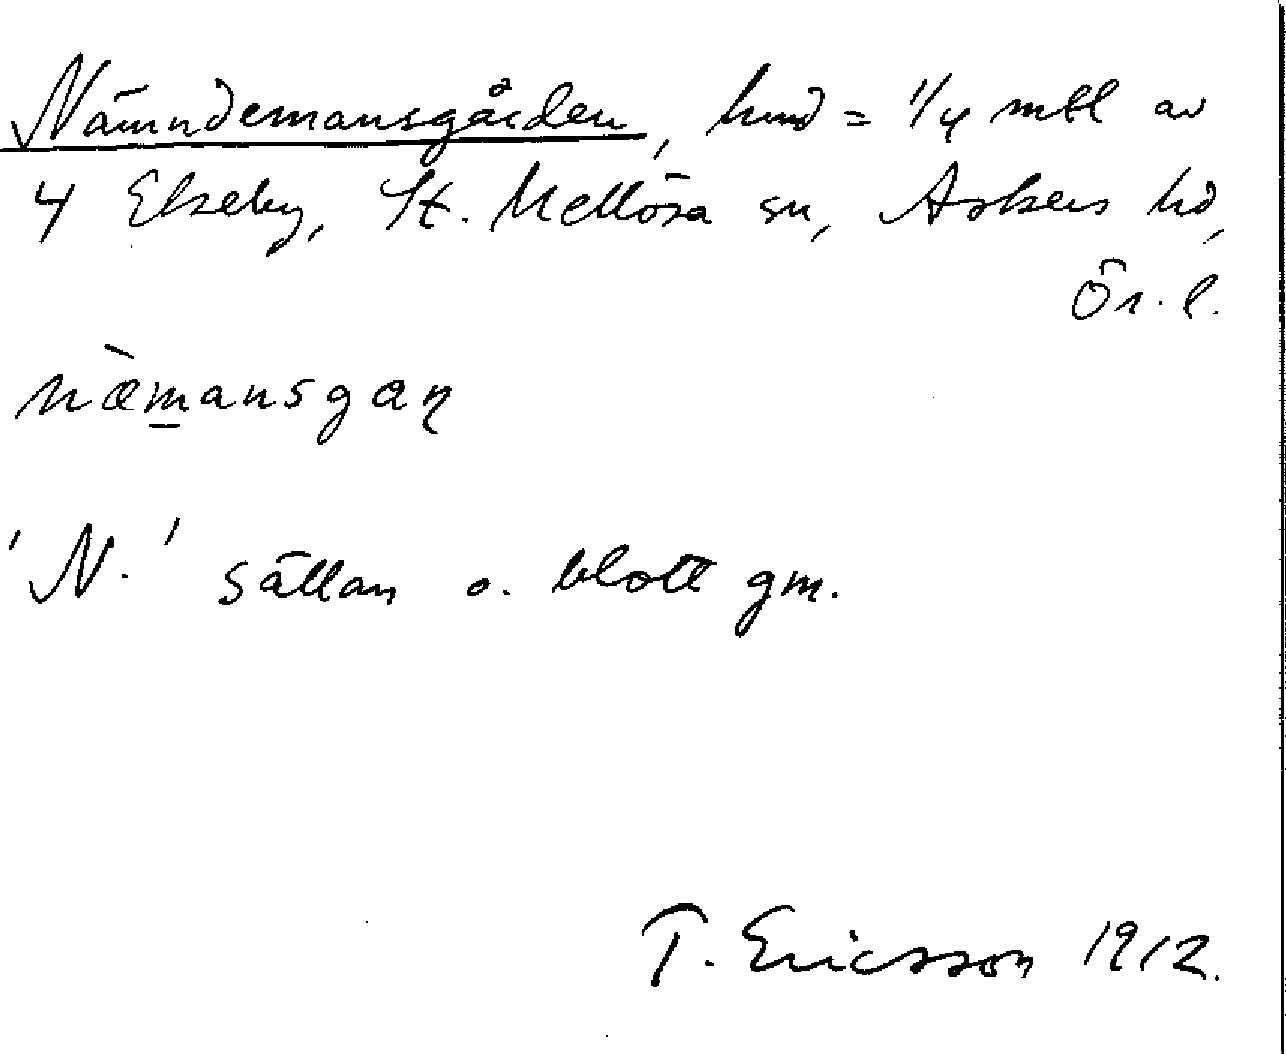 Nämndemansgården, hmd = 1/4 mtl av
4 Ekeby, St. Mellösa sn, Askers hd,
Ör. l.
næ̀m̲ansgaɳ
'N.' sällan o. blott gm.
T. Ericsson 1912.